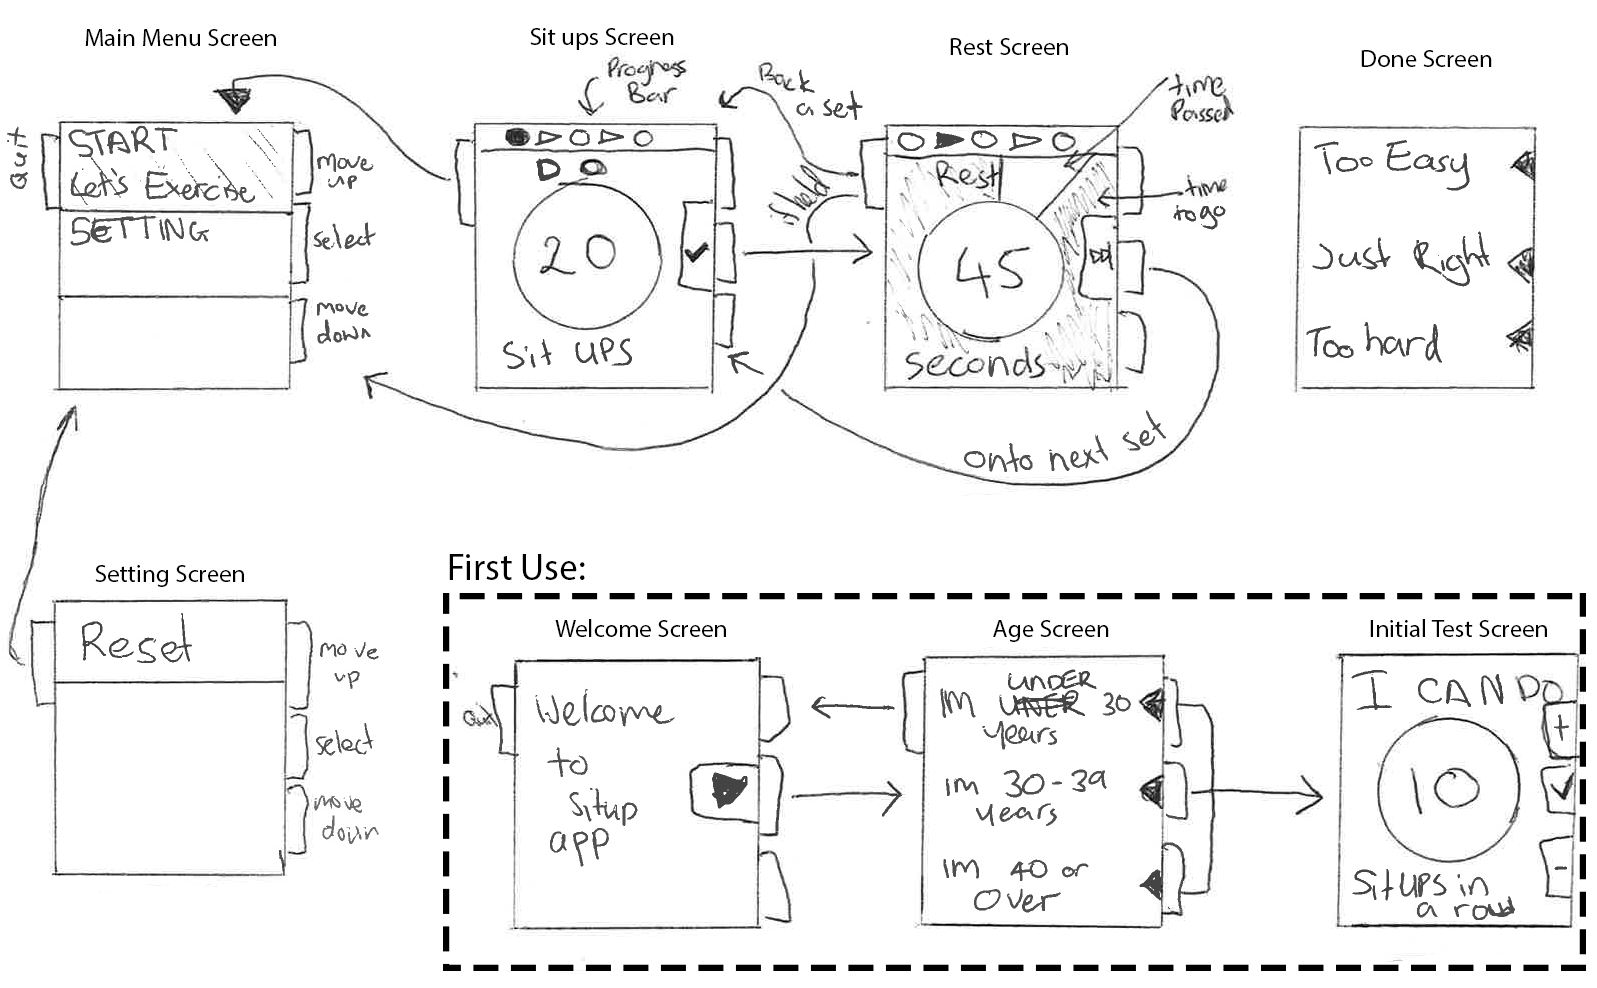 Main Menu Screen
Quit
START
Let's Exercise
SETTING
move
up
select
move
down
Sit ups Screen
Progress
Bar
20
Sit UPS
Back
a set
if held
Rest Screen
Rest
45
seconds
time
Passed
time
to go
onto next set
Done Screen
Too Easy
Just Right
Too hard
Setting Screen
Reset
move
up
select
move
down
First Use:
Welcome Screen
Quit
Welcome
to
Situp
app
Age Screen
UNDER
IM UNER 30
years
im 30-39
years
IM 40 or
Over
Initial Test Screen
I CAN DO
+
10
-
SitUPS in
a row